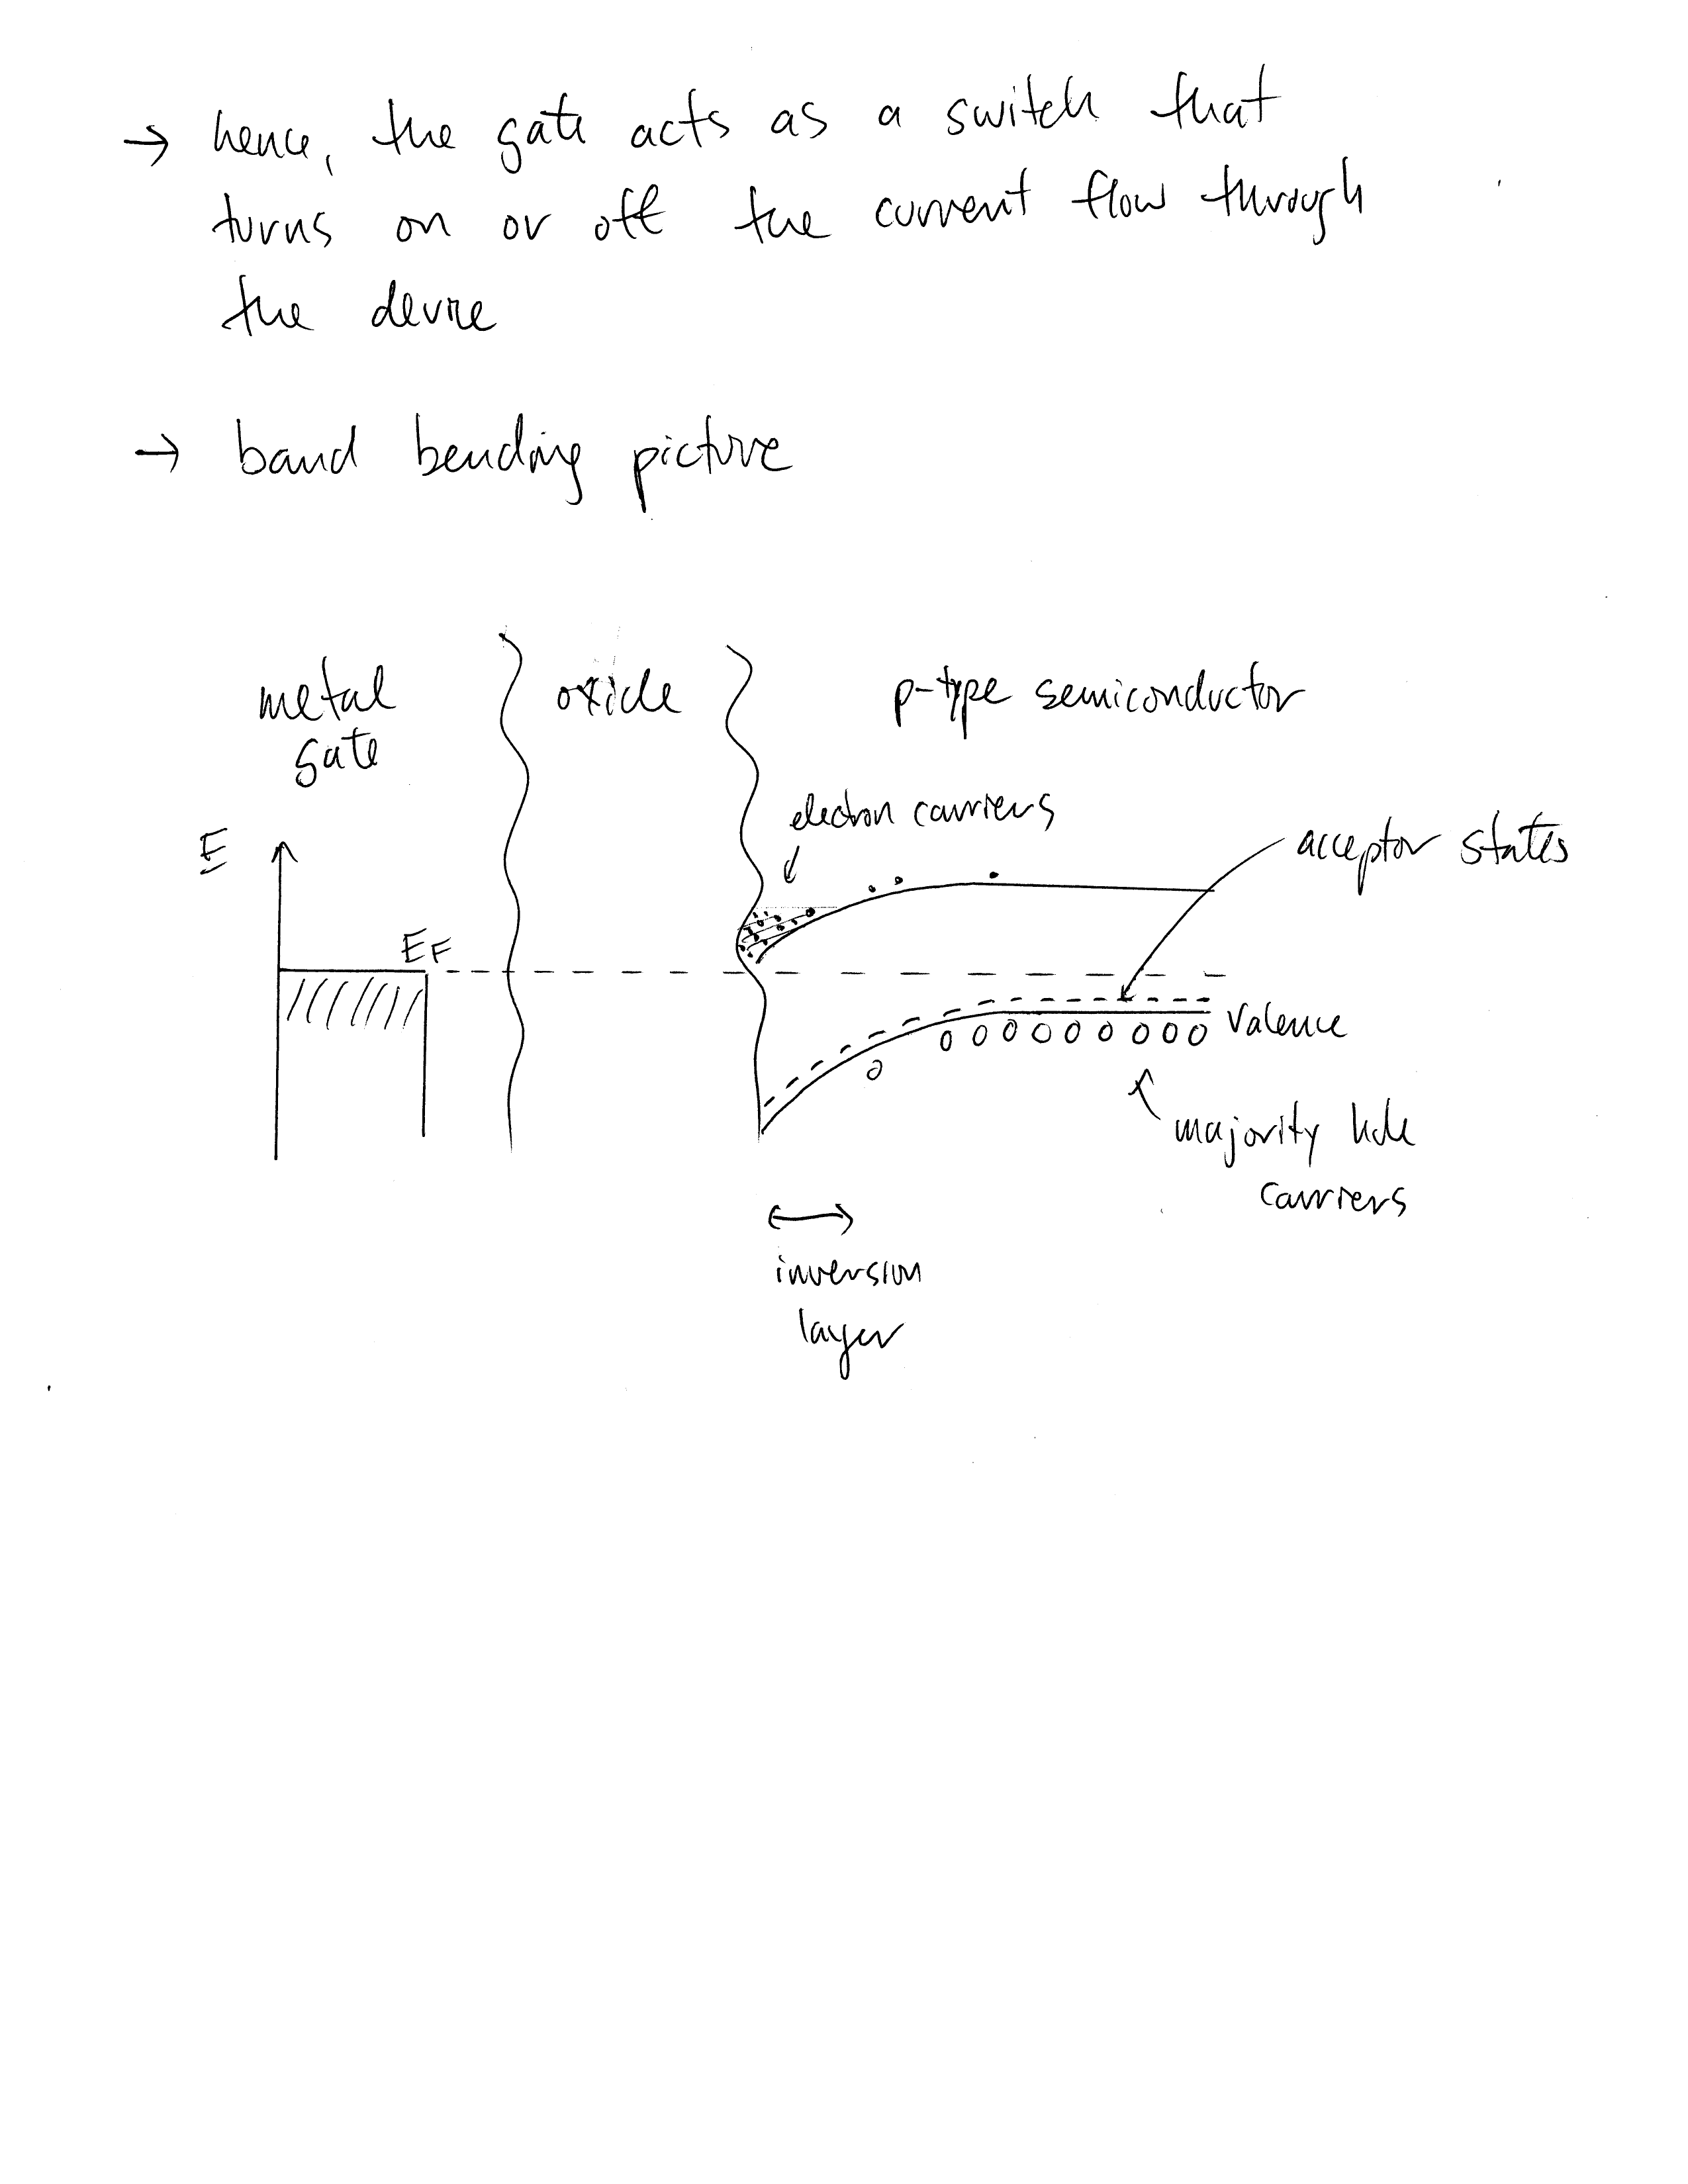 → hence, the gate acts as a switch that
turns on or off the current flow through
the device
→ band bending picture
metal
gate
oxide
p-type semiconductor
electron carriers
acceptor states
E
EF
Valence
majority hole
carriers
inversion
layer